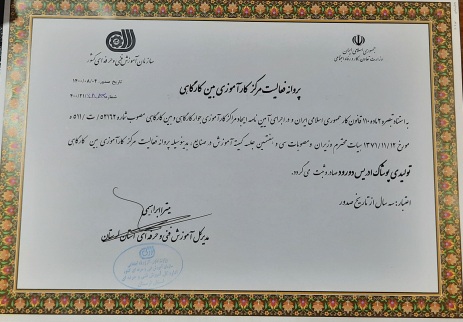 جمهوری اسلامی ایران
وزارت تعاون، کار و رفاه اجتماعی
سازمان آموزش فنی و حرفه ای کشور
تاریخ صدور: ۱۴۰۰/۰۸/۰۴
شماره
پروانه فعالیت مرکز کارآموزی بین کارگاهی
به استناد تبصره ۲ ماده ۱۱۰ قانون کار جمهوری اسلامی ایران و در اجرای آیین نامه ایجاد مراکز کارآموزی جوار کارگاهی و بین کارگاهی مصوب شماره ۵۲۱۶۲/ت۵۱۱ه
مورخ ۱۳۷۱/۱۱/۱۲ هیات محترم وزیران و مصوبات سی و هفتمین جلسه کمیته آموزش در صنایع، بدینوسیله پروانه فعالیت مرکز کارآموزی بین کارگاهی
تولیدی پوشاک ادریس دورود صادر و ثبت می گردد.
اعتبار: سه سال از تاریخ صدور
میترا ابراهیمی
مدیر کل آموزش فنی و حرفه ای استان لرستان